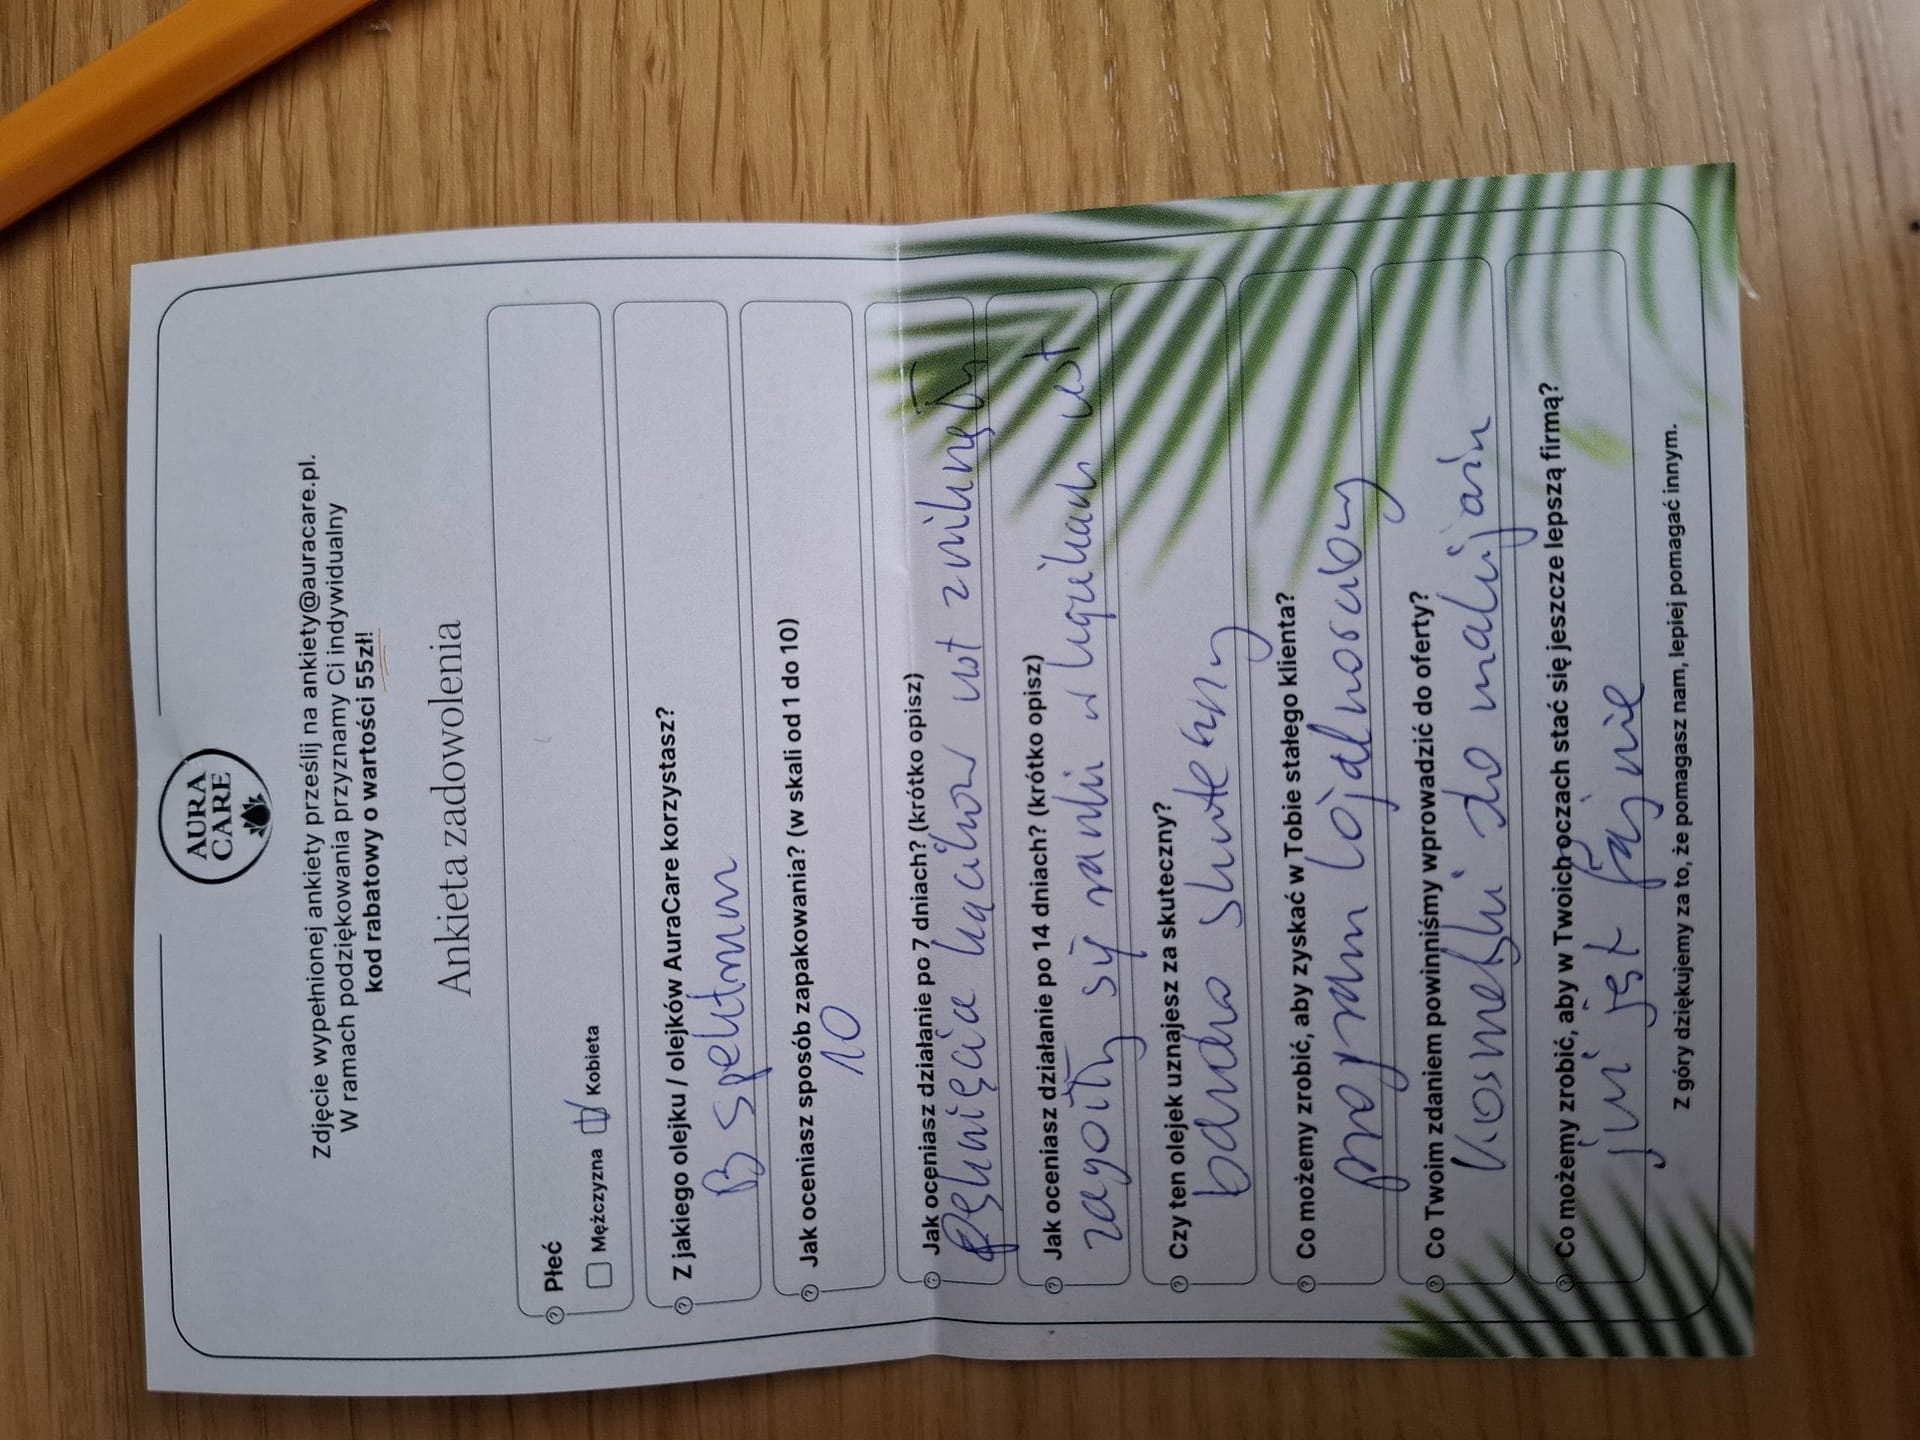 AURA
CARE
Zdjęcie wypełnionej ankiety prześlij na ankiety@auracare.pl.
W ramach podziękowania przyznamy Ci indywidualny
kod rabatowy o wartości 55zł!
Ankieta zadowolenia
Płeć
Mężczyzna Kobieta
Z jakiego olejku / olejków AuraCare korzystasz?
B spektrum
Jak oceniasz sposób zapakowania? (w skali od 1 do 10)
10
Jak oceniasz działanie po 7 dniach? (krótko opisz)
pęknięcia kącików ust zniknęły
Jak oceniasz działanie po 14 dniach? (krótko opisz)
zagoiły się ranki w kącikach ust
Czy ten olejek uznajesz za skuteczny?
bardzo skuteczny
Co możemy zrobić, aby zyskać w Tobie stałego klienta?
program lojalnosciowy
Co Twoim zdaniem powinniśmy wprowadzić do oferty?
kosmetyki do makijażu
Co możemy zrobić, aby w Twoich oczach stać się jeszcze lepszą firmą?
już jest fajnie
Z góry dziękujemy za to, że pomagasz nam, lepiej pomagać innym.